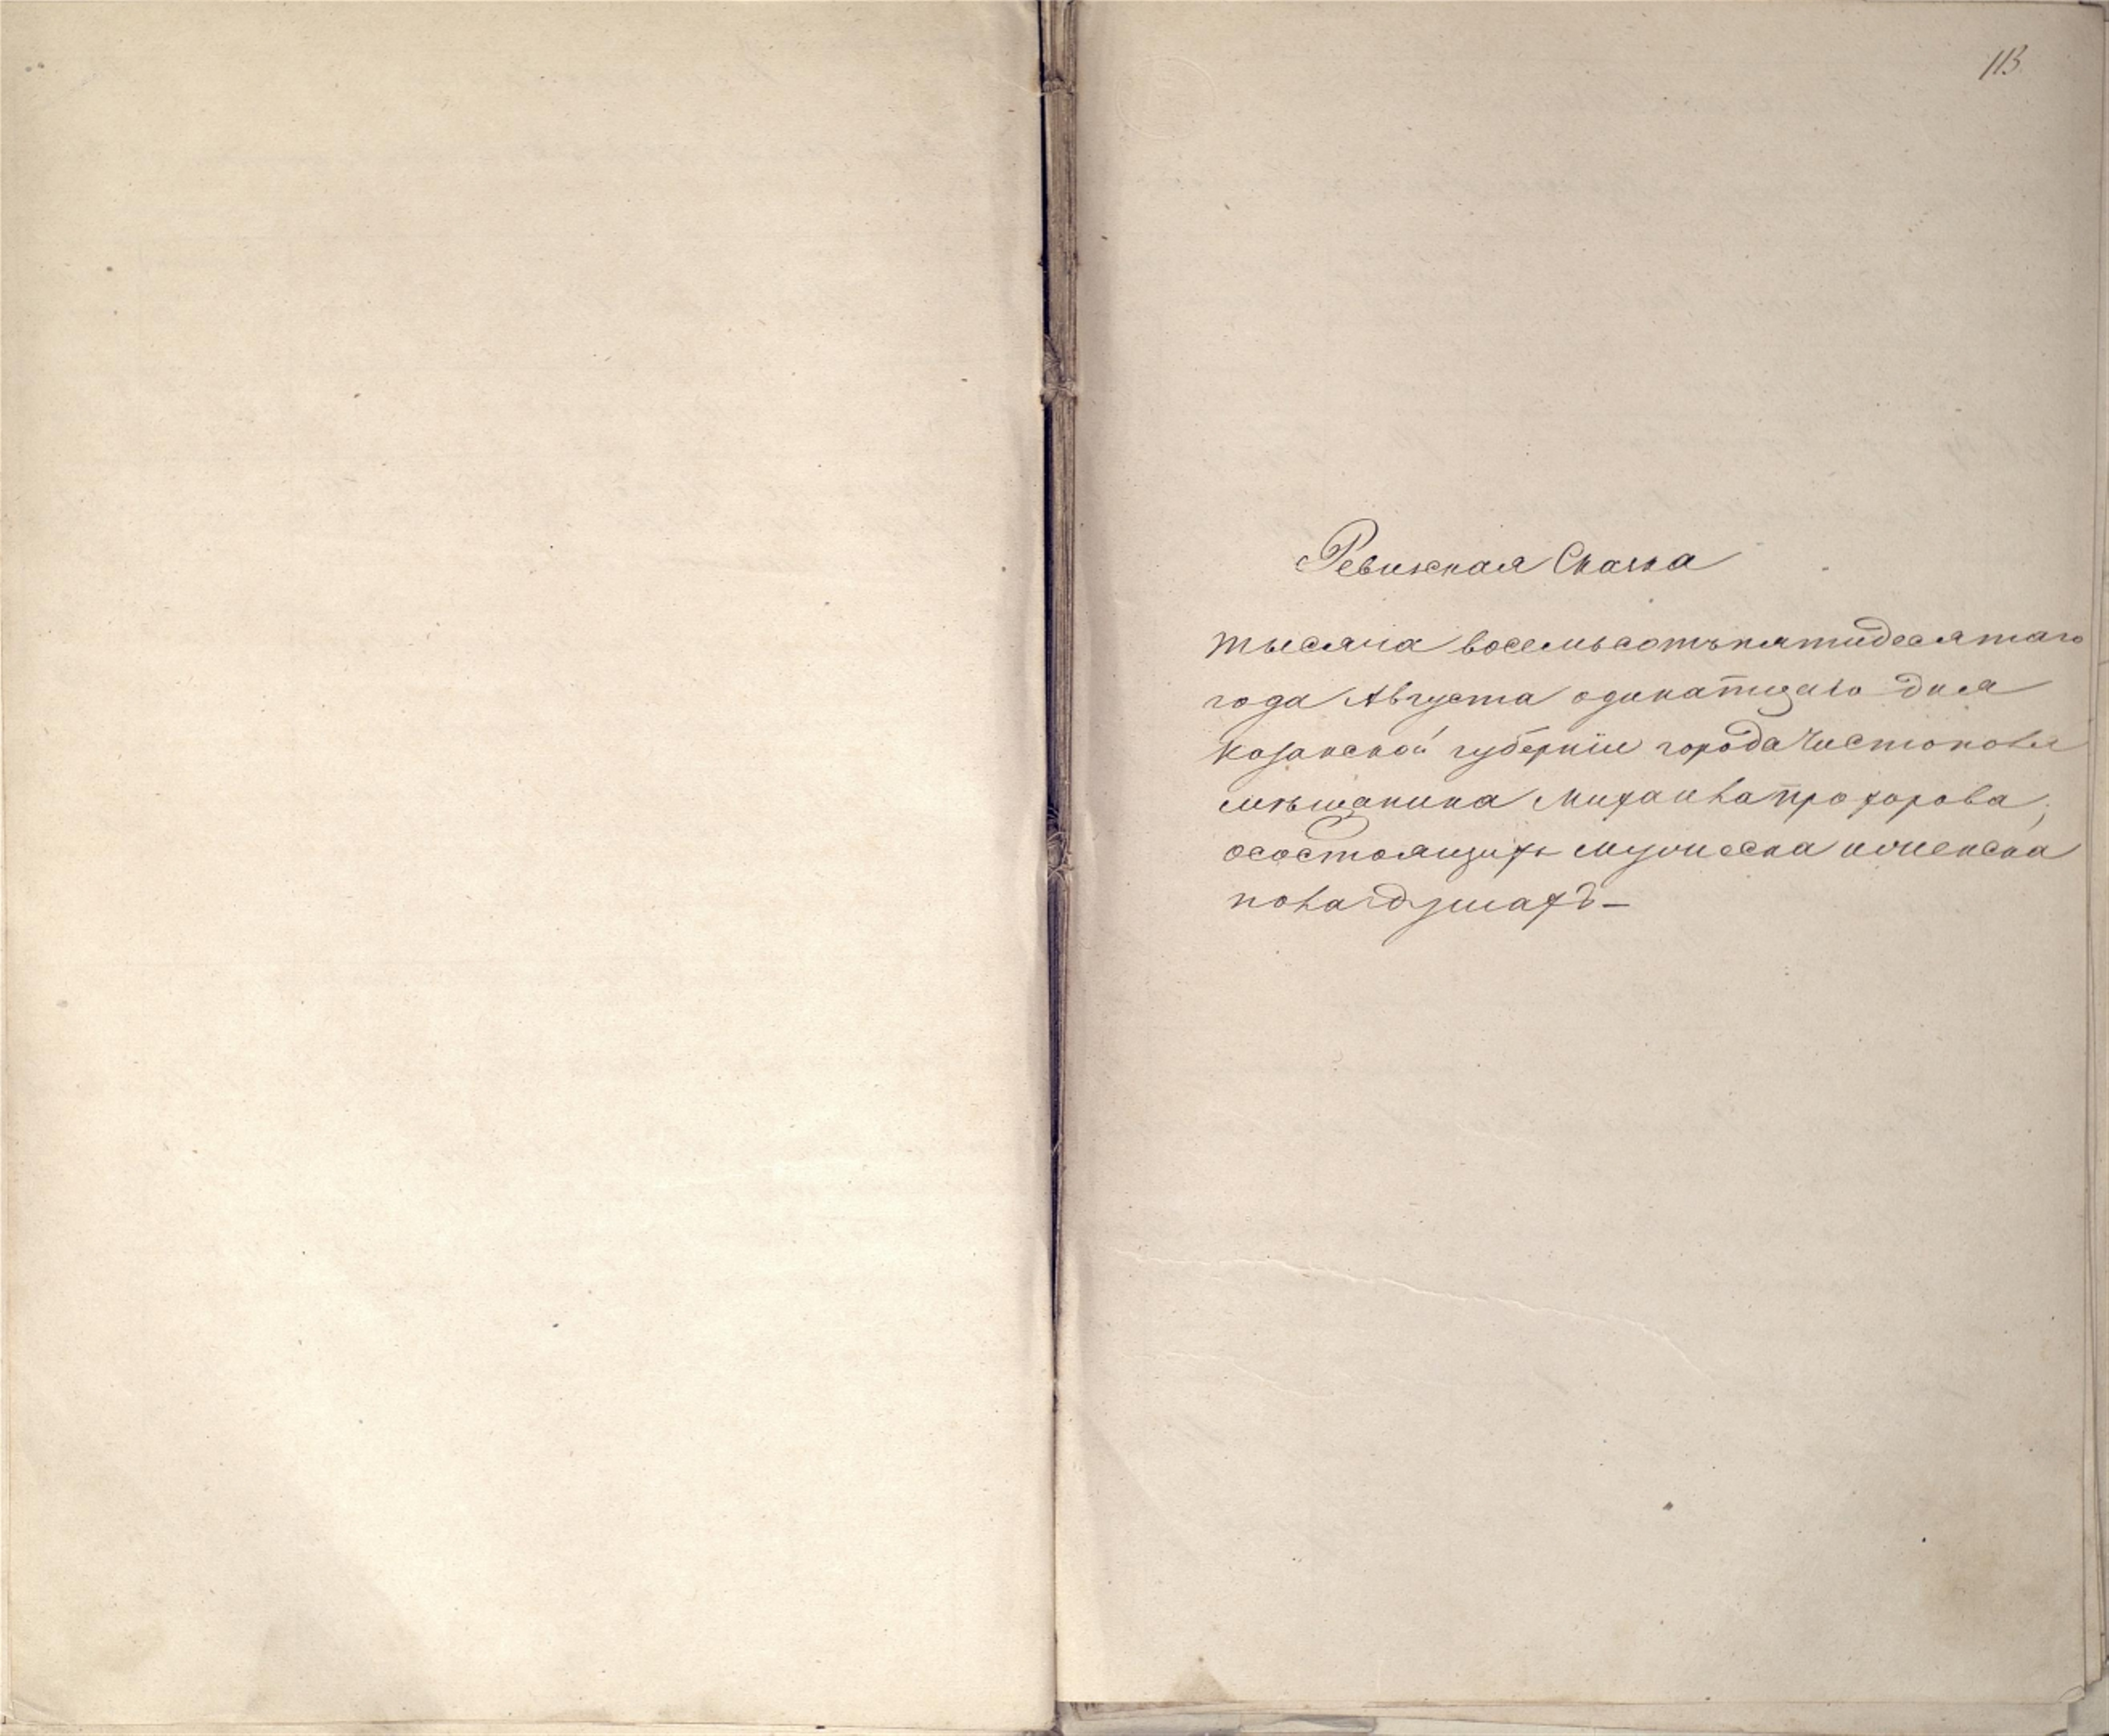 113
Ревижская Скаска
тысяча восемьсотъ пятидесятаго
года Августа одинатцаго дня
Казанской губернiи города Чистополя
мѣщанина Михаила Прохорова,
осостоящихъ мужеска иженска
пола душахъ—